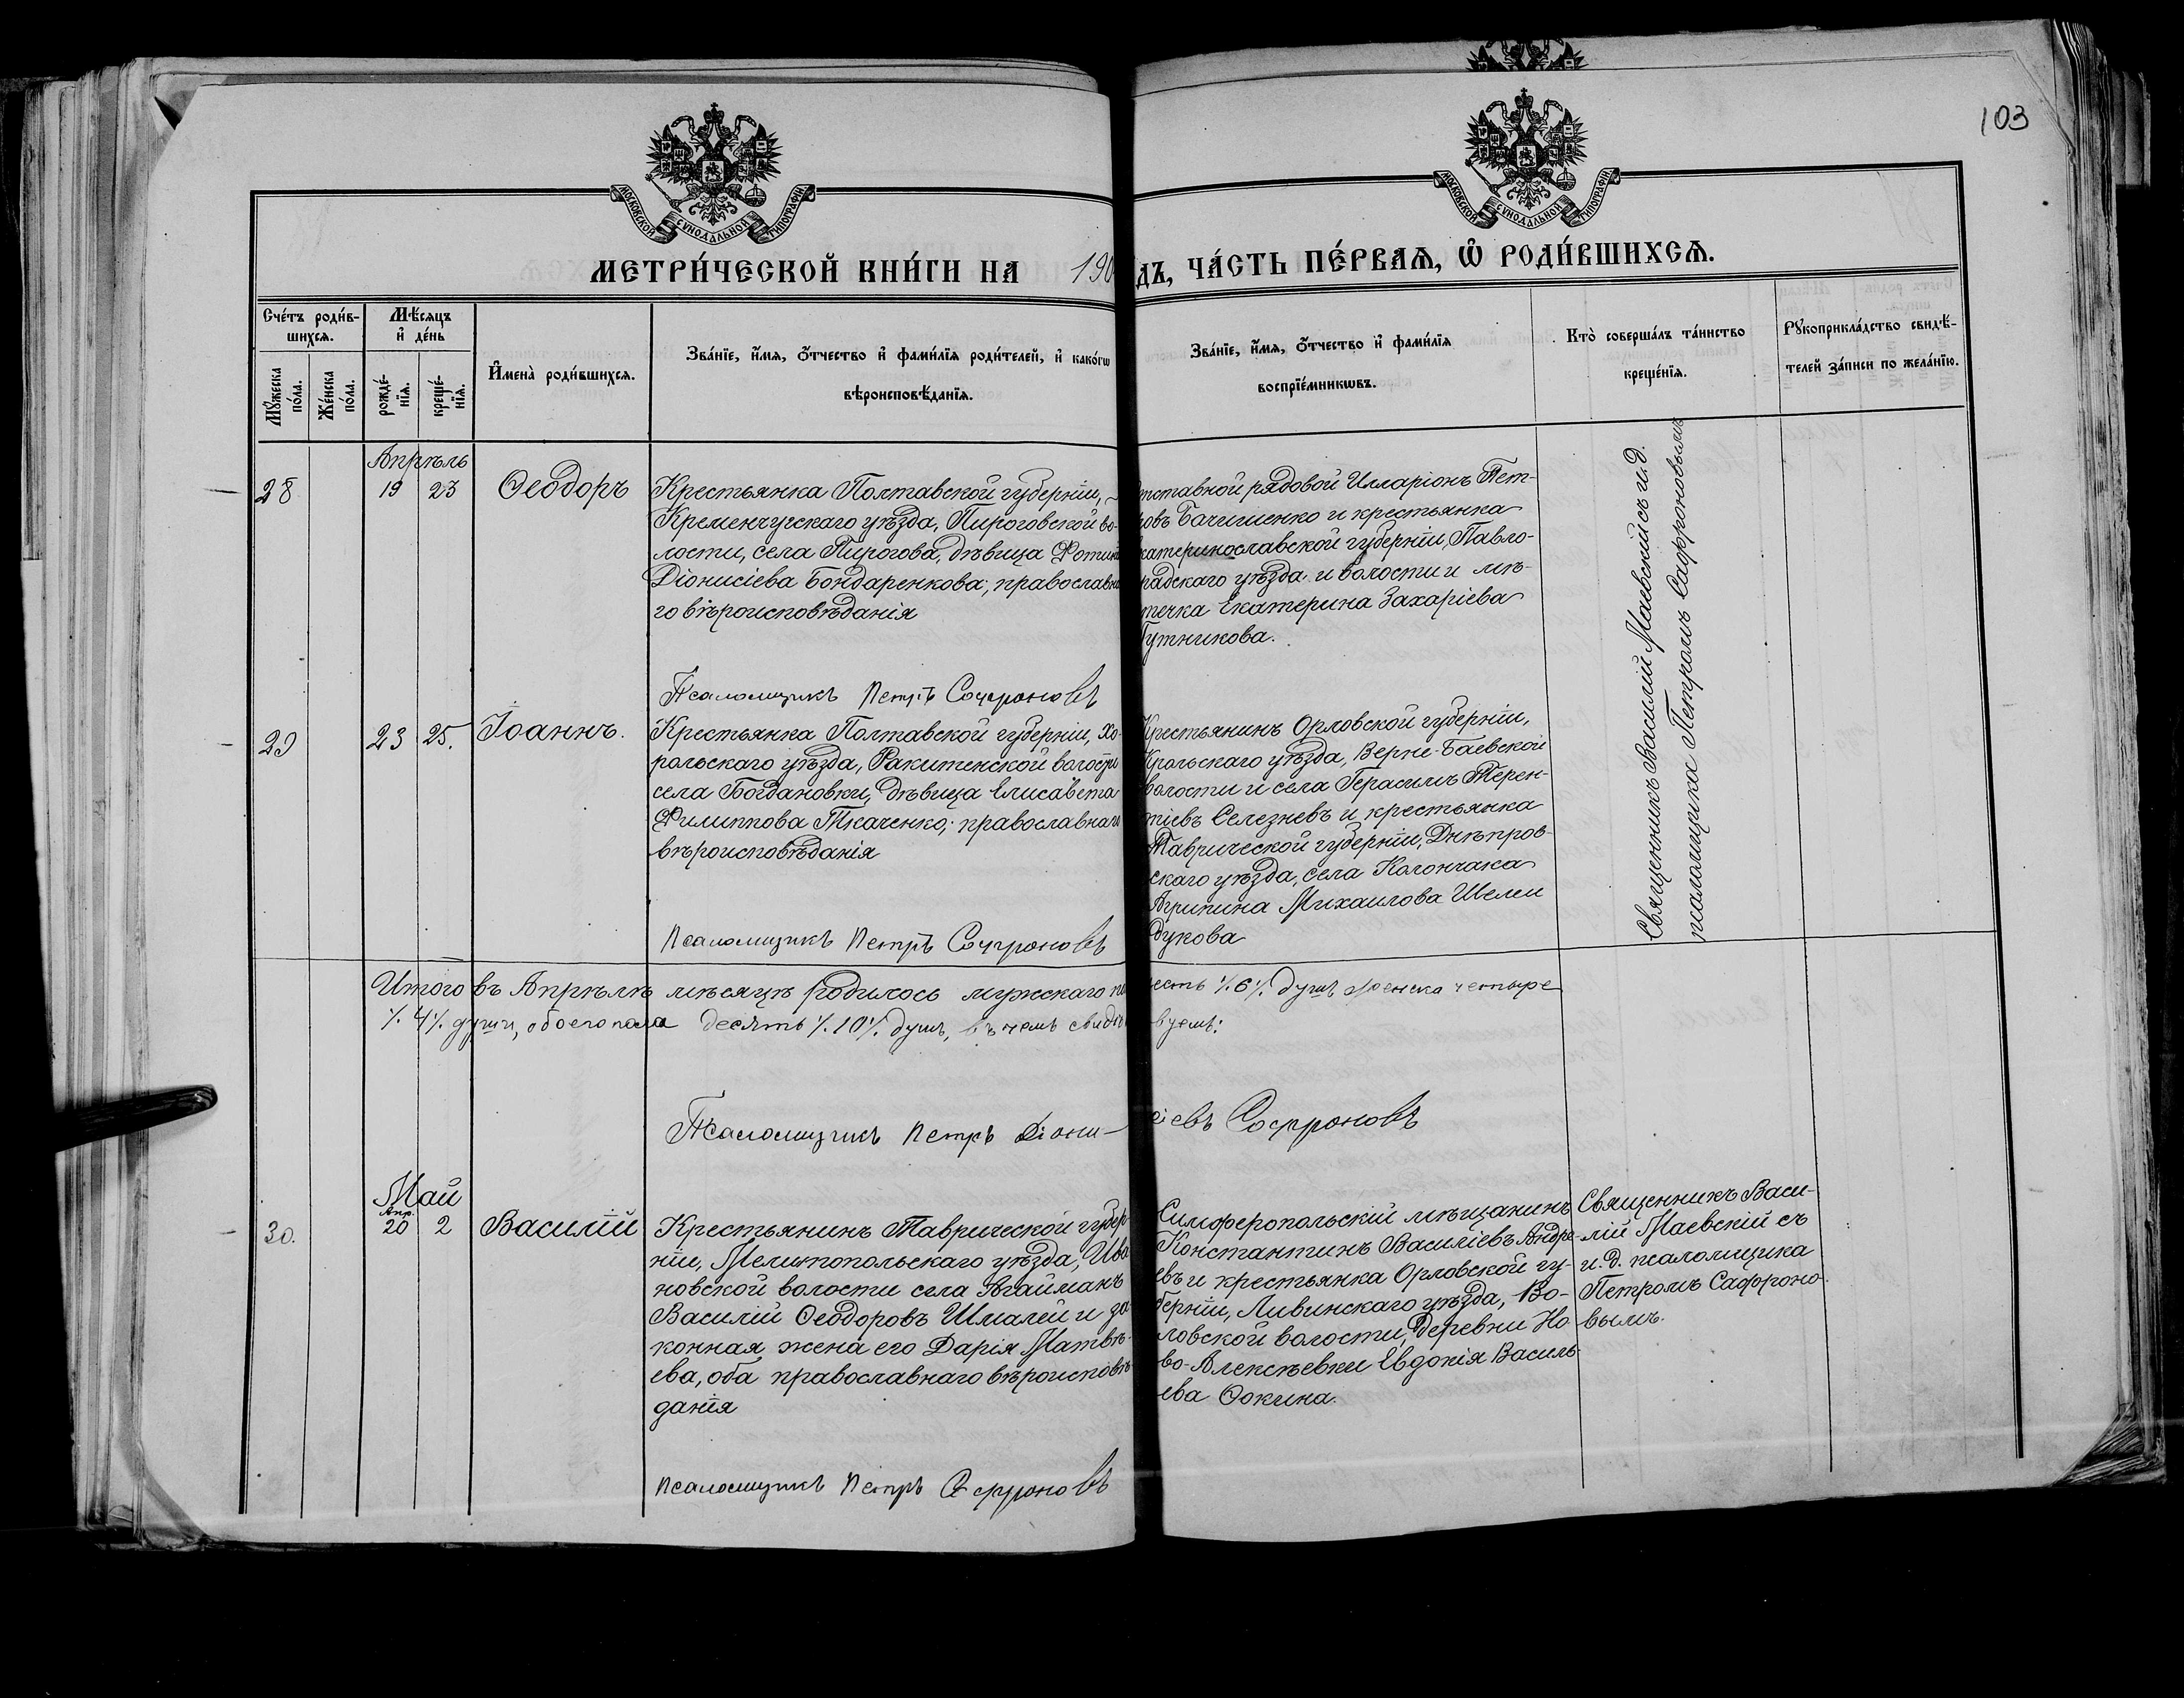 103
МОСКОВСКОЙ СѴНОДАЛЬНОЙ ТИПОГРАФІИ
МОСКОВСКОЙ СѴНОДАЛЬНОЙ ТИПОГРАФІИ
МЕТРИ́ЧЕСКОЙ КНИ́ГИ НА 190
дъ, ЧА́СТЬ ПЕ́РВАѦ, Ѿ РОДИ́ВШИХСѦ.
Сче́тъ роди́в-
шихсѧ.
Мꙋ́жеска по́ла.
Же́нска по́ла.
Мѣ́сѧцъ
и҆ де́нь
рожде́-
нїѧ.
креще́-
нїѧ.
И҆мена̀ роди́вшихсѧ.
Зва́нїе, и҆́мѧ, ѻ҆́тчество и҆ фами́лїѧ роди́телей, и҆ како́гѡ
вѣроисповѣ́данїѧ.
Зва́нїе, и҆́мѧ, ѻ҆́тчество и҆ фами́лїѧ
воспрїе́мникѡвъ.
Кто̀ соверша́лъ та́инство
креще́нїѧ.
Рꙋкоприкла́дство свидѣ́-
телей за́писи по жела́нїю.
Апрѣль
28 19 23 Ѳеодоръ
Крестьянка Полтавской губерніи,
Кременчугскаго уѣзда, Пироговской во-
лости, села Пирогова, дѣвица Фотина
Діонисіева Бондаренкова; православна
го вѣроисповѣданія
Псаломщикъ Петръ Софроновъ
тставной рядовой Илларіонъ Пет-
ровъ Бачишенко и крестьянка
катеринославской губерніи, Павло-
градскаго уѣзда и волости и мѣ-
течка Екатерина Захаріева
Гутникова.
29 23 25. Іоаннъ.
Крестьянка Полтавской губерніи, Хо-
рольскаго уѣзда, Ракитенской волости
села Богдановки, дѣвица Елисавета
Филиппова Ткаченко; православнаго
вѣроисповѣданія
Псаломщикъ Петръ Софроновъ
Крестьянинъ Орловской губерніи,
Крольскаго уѣзда, Верне-Баевской
волости и села Герасимъ Терен-
тіевъ Селезневъ и крестьянка
Таврической губерніи, Днѣпров-
скаго уѣзда, села Колончака
Агрипина Михаилова Шелеи
дукова
Священникъ Василій Маевскій съ и.д.
псаломщика Петромъ Сафроновымъ
Итого въ Апрѣлѣ мѣсяцѣ родилось мужскаго по
есть ٪ 6 ٪ душъ женска четыре
٪ 4 ٪ души, обоего пола десять ٪ 10 ٪ душъ, въ чемъ свидѣ
вуемъ:
Псаломщикъ Петръ Діони-
сіевъ Софроновъ
Май
Апр.
30. 20 2 Василій
Крестьянинъ Таврической губер
ніи, Мелитопольскаго уѣзда, Ива
новской волости села Агайманъ
Василій Ѳеодоровъ Шмалей и за-
конная жена его Дарія Матвѣ-
ева, оба православнаго вѣроисповѣ
данія
Псаломщикъ Петръ Софроновъ
Симферопольскій мѣщанинъ
Константинъ Василіевъ Андре-
евъ и крестьянка Орловской гу-
берніи, Ливинскаго уѣзда, Во-
ловской волости, деревни Но
во-Алексѣевки Евдокія Василь-
ева Ѳокина.
Священникъ Васи-
лій Маевскій съ
и. д. псаломщика
Петромъ Сафроно-
вымъ.